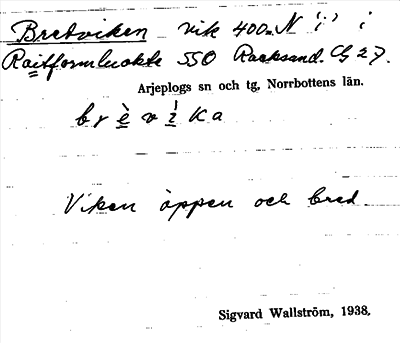 Bretviken vik 400m N "i" i
Raitformluokte SSO Racksand. Cg 27.
Arjeplogs sn och tg, Norrbottens län.
brèvìka
Viken öppen och bred.
Sigvard Wallström, 1938.